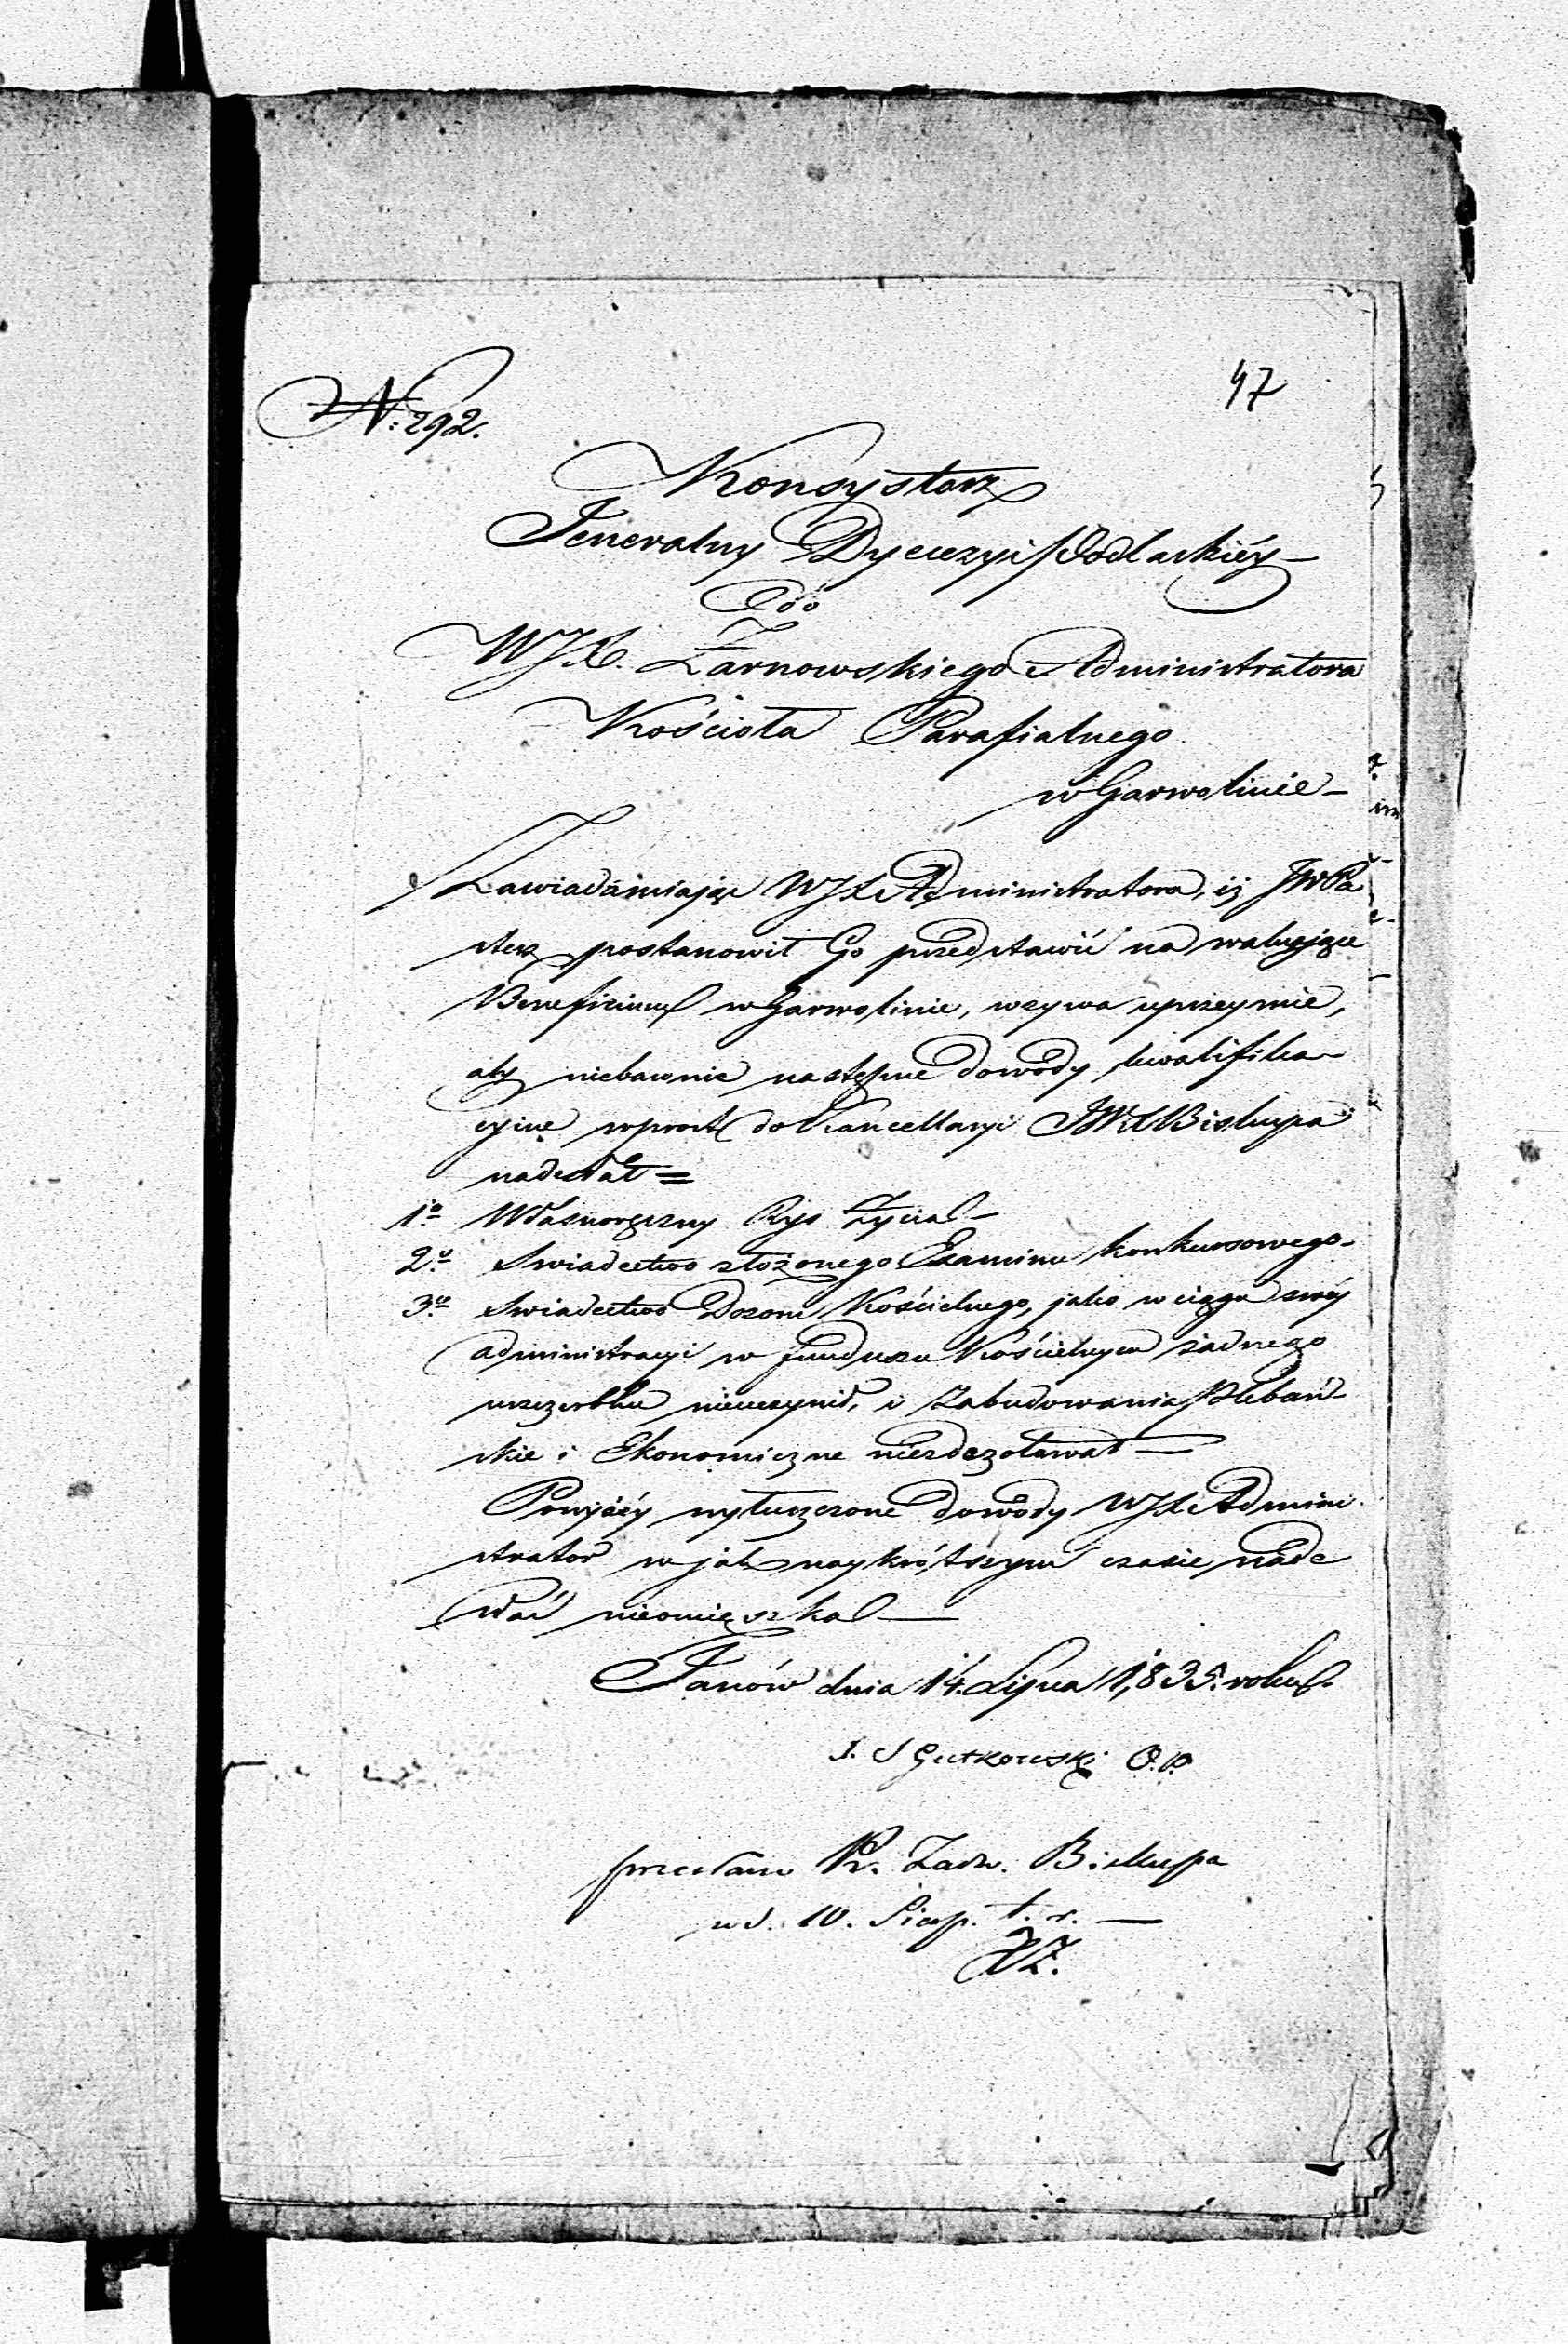 47
N. 292.
Konsystorz
Jeneralny Dyecezyi Podlaskiéy
Do
WJX. Żarnowskiego Administratora
Kościoła Parafialnego
w Garwolinie
Zawiadamiając WJX Administratora, iż JW Pa
sterz postanowił Go przedstawić na wakujące
Beneficium w Garwolinie, wzywa uprzeymie,
aby niebawnie następne dowody kwalifika
cyine wprost do Kancellaryi JWX Biskupa
nadesłał =
1o Własnoręczny Rys Życia
2o Swiadectwo złożonego Examinu konkursowego
3o Swiadectwo Dozoru Kościelnego, jako w ciągu swéy
administracyi w funduszu Kościelnym żadnego
uszczerbku nieuczynił, i Zabudowania Plebań
skie i Ekonomiczne niezdezolował
Powyżéy wyłuszczone dowody WJX Admini
strator w jak naykrótszym czasie nade
słać nieomięszka
Janów dnia 14. Lipca 1,835. roku
J. S Gutkowski
Biskupa
10. Sierp. t. r.
XZ.